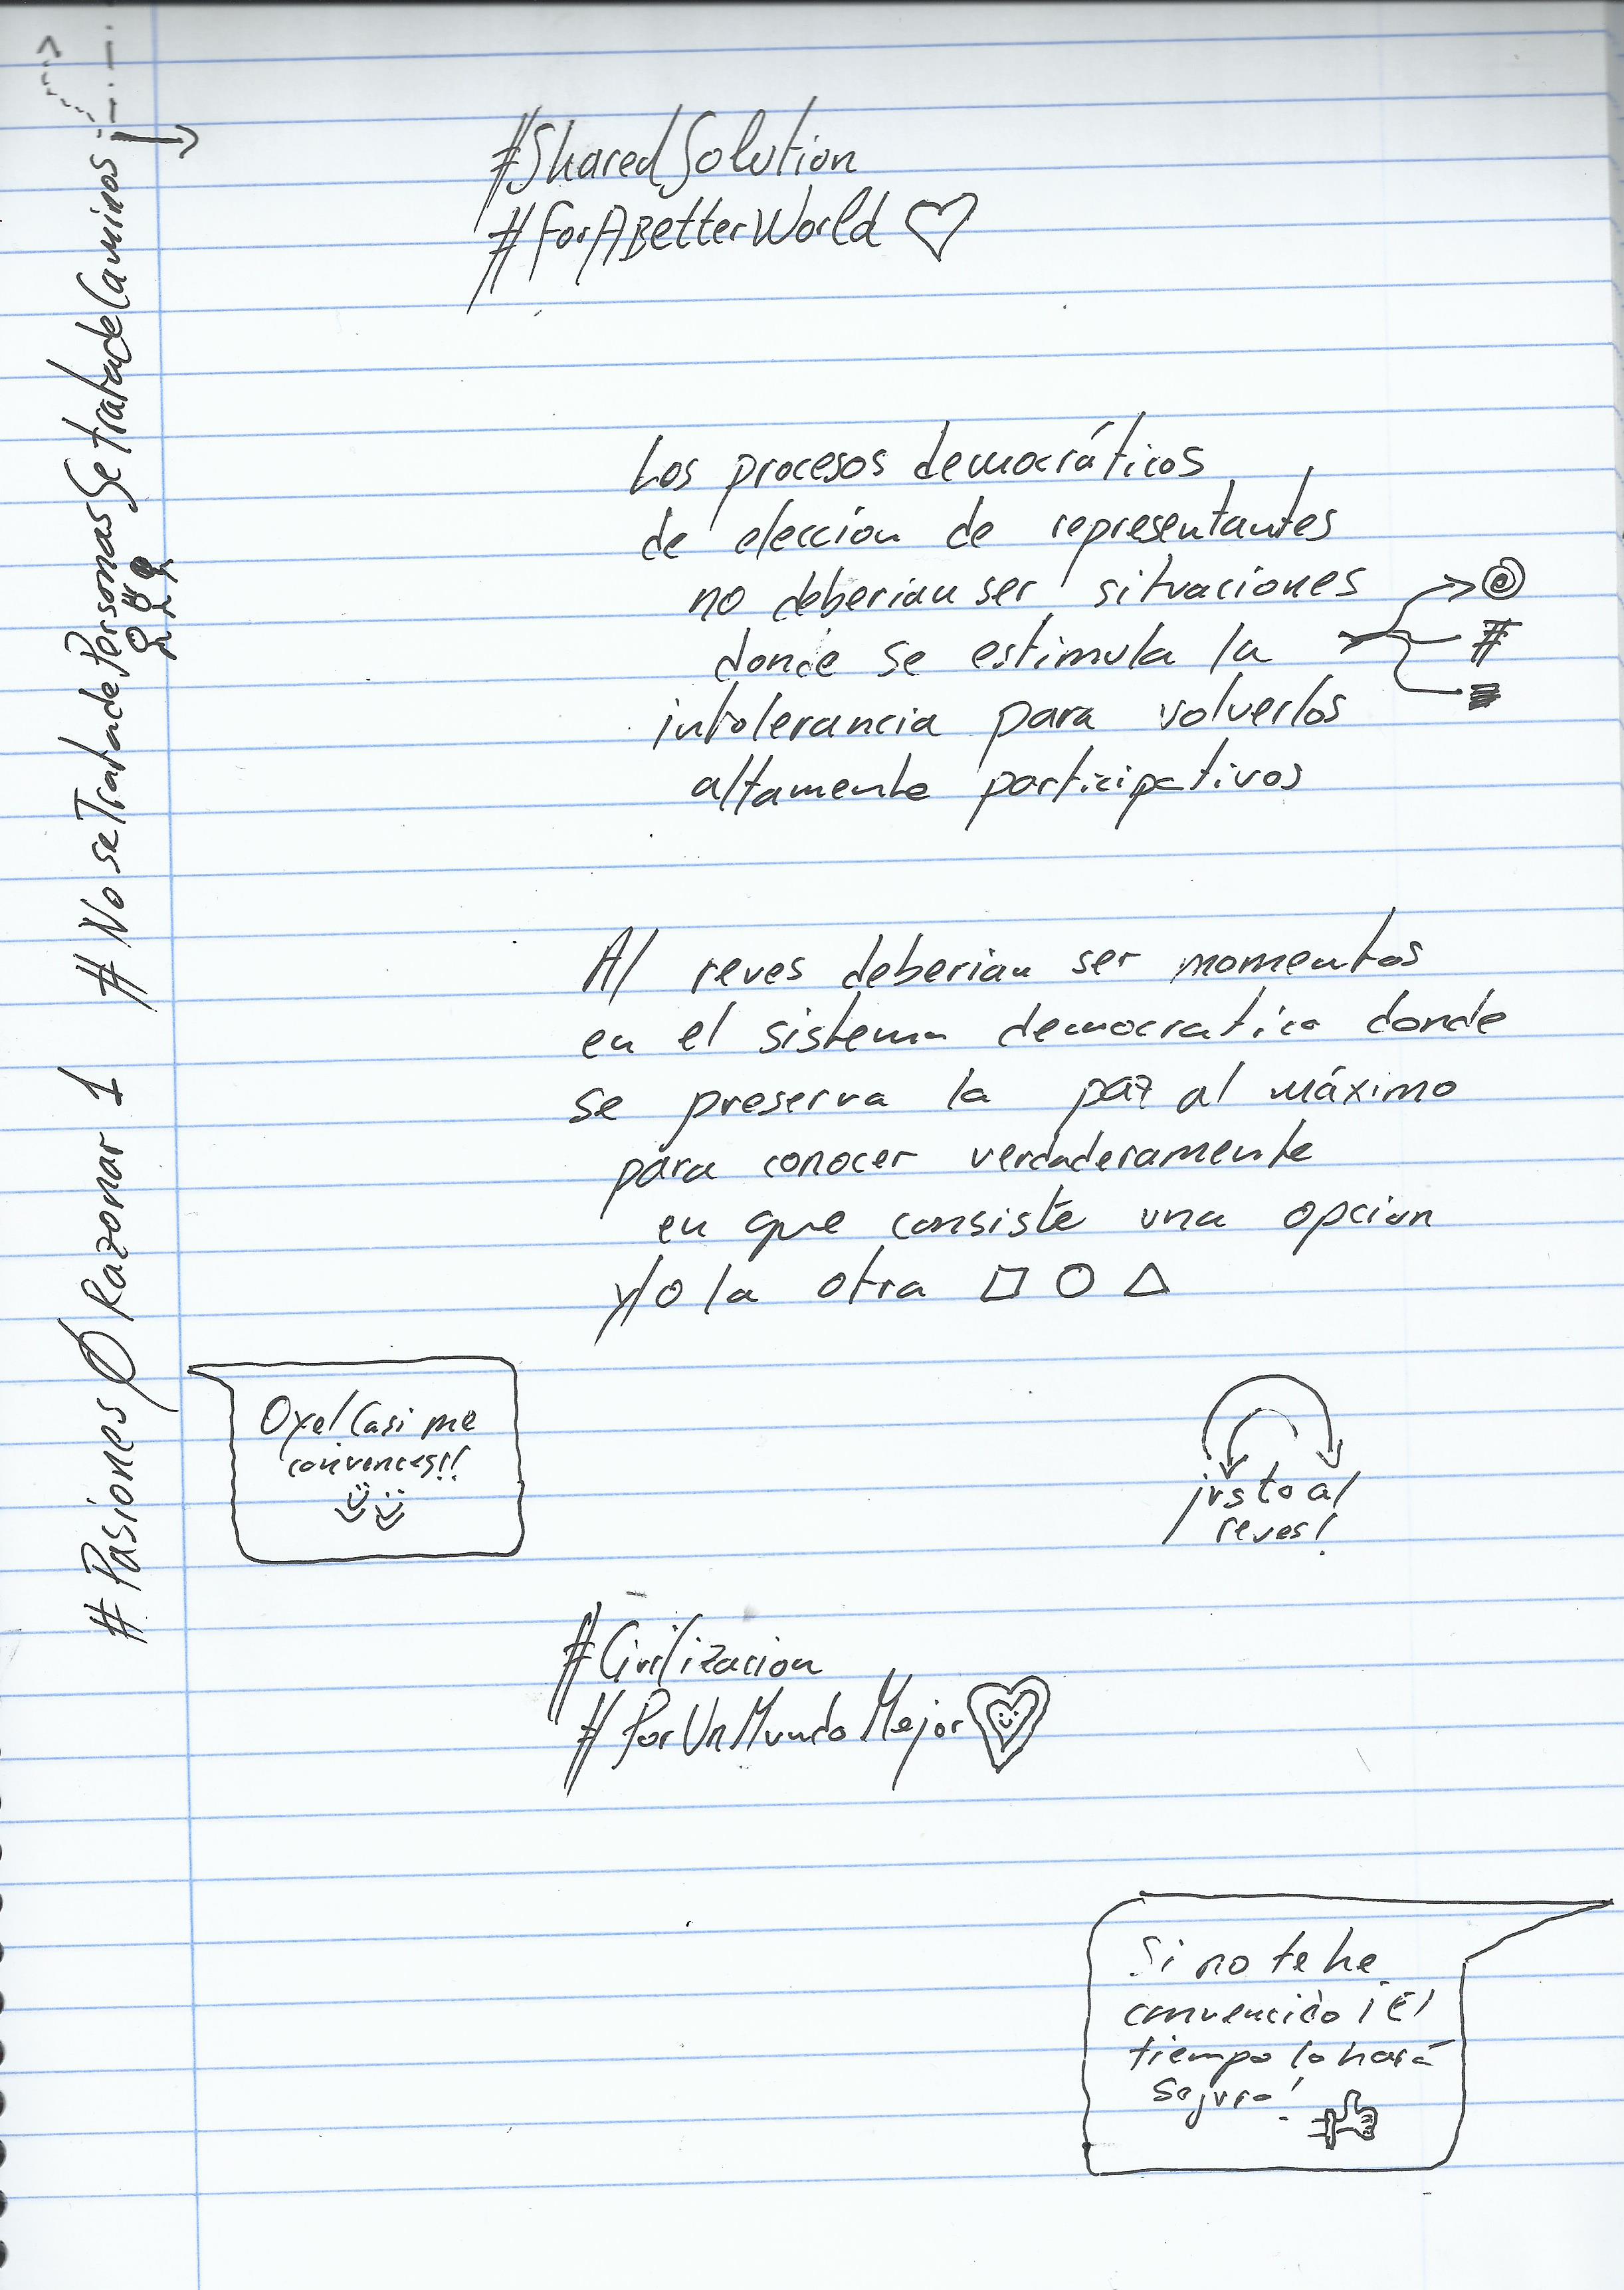 #SharedSolution
#ForABetterWorld
Los procesos democráticos
de eleccion de representantes
no deberian ser situaciones
donde se estimula la
intolerancia para volverlos
altamente participativos
@
#
Al reves deberian ser momentos
en el sistema democratico donde
se preserva la paz al máximo
para conocer verdaderamente
en que consiste una opcion
y/o la otra
Oye! Casi me
convences!!
justo al
reves!
#Civilizacion
#PorUnMundoMejor
Si no te he
convencido ¡El
tiempo lo hará
seguro!
#PasionesØRazonar 1
#NoseTratadePersonasSetratadeCaminos